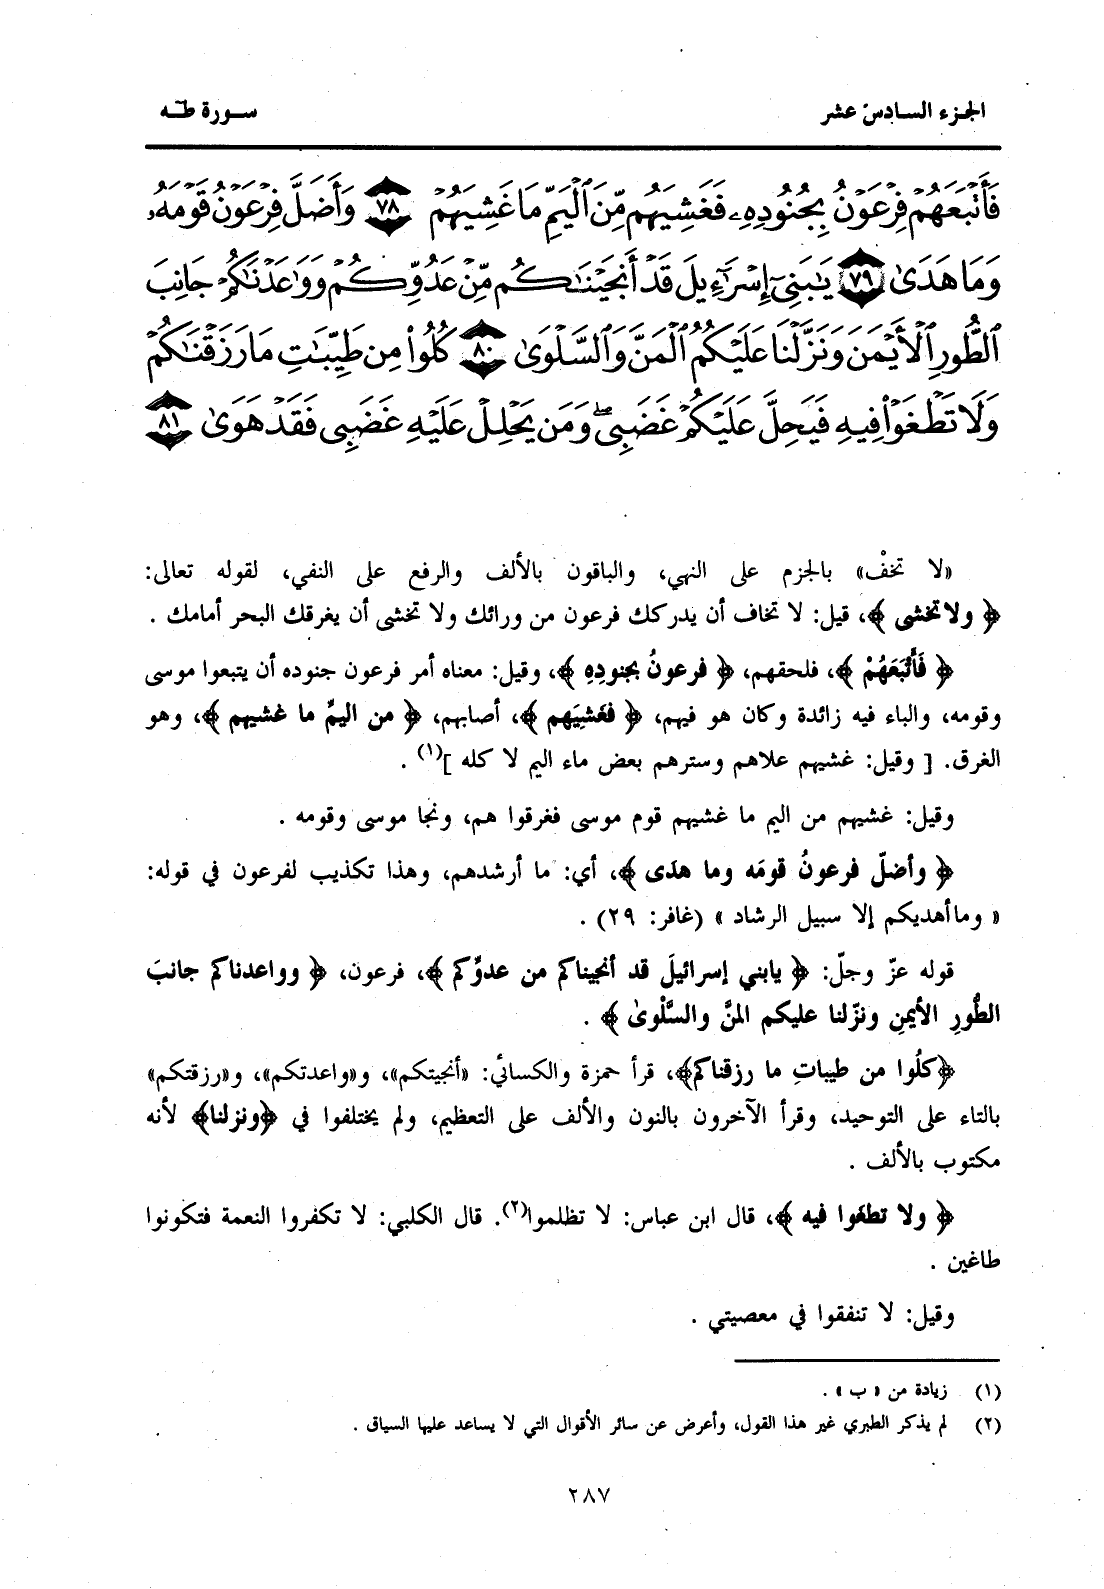 الجزء السادس عشر
سورة طه
فَأَتْبَعَهُمْ فِرْعَوْنُ بِجُنُودِهِۦ فَغَشِيَهُم مِّنَ ٱلْيَمِّ مَا غَشِيَهُمْ ٧٨ وَأَضَلَّ فِرْعَوْنُ قَوْمَهُۥ
وَمَا هَدَىٰ ٧٩ يَـٰبَنِىٓ إِسْرَٰٓءِيلَ قَدْ أَنجَيْنَـٰكُم مِّنْ عَدُوِّكُمْ وَوَٰعَدْنَـٰكُمْ جَانِبَ
ٱلطُّورِ ٱلْأَيْمَنَ وَنَزَّلْنَا عَلَيْكُمُ ٱلْمَنَّ وَٱلسَّلْوَىٰ ٨٠ كُلُوا۟ مِن طَيِّبَـٰتِ مَا رَزَقْنَـٰكُمْ
وَلَا تَطْغَوْا۟ فِيهِ فَيَحِلَّ عَلَيْكُمْ غَضَبِى ۖ وَمَن يَحْلِلْ عَلَيْهِ غَضَبِى فَقَدْ هَوَىٰ ٨١
«لا تخفْ» بالجزم على النهي، والباقون بالألف والرفع على النفي، لقوله تعالى:
﴿ ولا تخشى ﴾، قيل: لا تخاف أن يدركك فرعون من ورائك ولا تخشى أن يغرقك البحر أمامك .
﴿ فَأَتْبَعَهُمْ ﴾، فلحقهم، ﴿ فرعونُ بجنودِهِ ﴾، وقيل: معناه أمر فرعون جنوده أن يتبعوا موسى
وقومه، والباء فيه زائدة وكان هو فيهم، ﴿ فغَشِيَهم ﴾، أصابهم، ﴿ من اليمِّ ما غشيهم ﴾، وهو
الغرق. [ وقيل: غشيهم علاهم وسترهم بعض ماء اليم لا كله ](١) .
وقيل: غشيهم من اليم ما غشيهم قوم موسى فغرقوا هم، ونجا موسى وقومه .
﴿ وأضلّ فرعونُ قومَه وما هدَى ﴾، أي: ما أرشدهم، وهذا تكذيب لفرعون في قوله:
« وما أهديكم إلا سبيل الرشاد » (غافر: ٢٩) .
قوله عزّ وجلّ: ﴿ يابني إسرائيلَ قد أنجيناكم من عدوِّكم ﴾، فرعون، ﴿ وواعدناكم جانبَ
الطُّورِ الأيمنِ ونزّلنا عليكم المنَّ والسَّلْوىٰ ﴾ .
﴿كلُوا من طيباتِ ما رزقناكم﴾، قرأ حمزة والكسائي: «أنجيتكم»، و«واعدتكم»، و«رزقتكم»
بالتاء على التوحيد، وقرأ الآخرون بالنون والألف على التعظيم، ولم يختلفوا في ﴿ونزلنا﴾ لأنه
مكتوب بالألف .
﴿ ولا تطغَوا فيه ﴾، قال ابن عباس: لا تظلموا(٢). قال الكلبي: لا تكفروا النعمة فتكونوا
طاغين .
وقيل: لا تنفقوا في معصيتي .
(١) زيادة من « ب » .
(٢) لم يذكر الطبري غير هذا القول، وأعرض عن سائر الأقوال التي لا يساعد عليها السياق .
٢٨٧